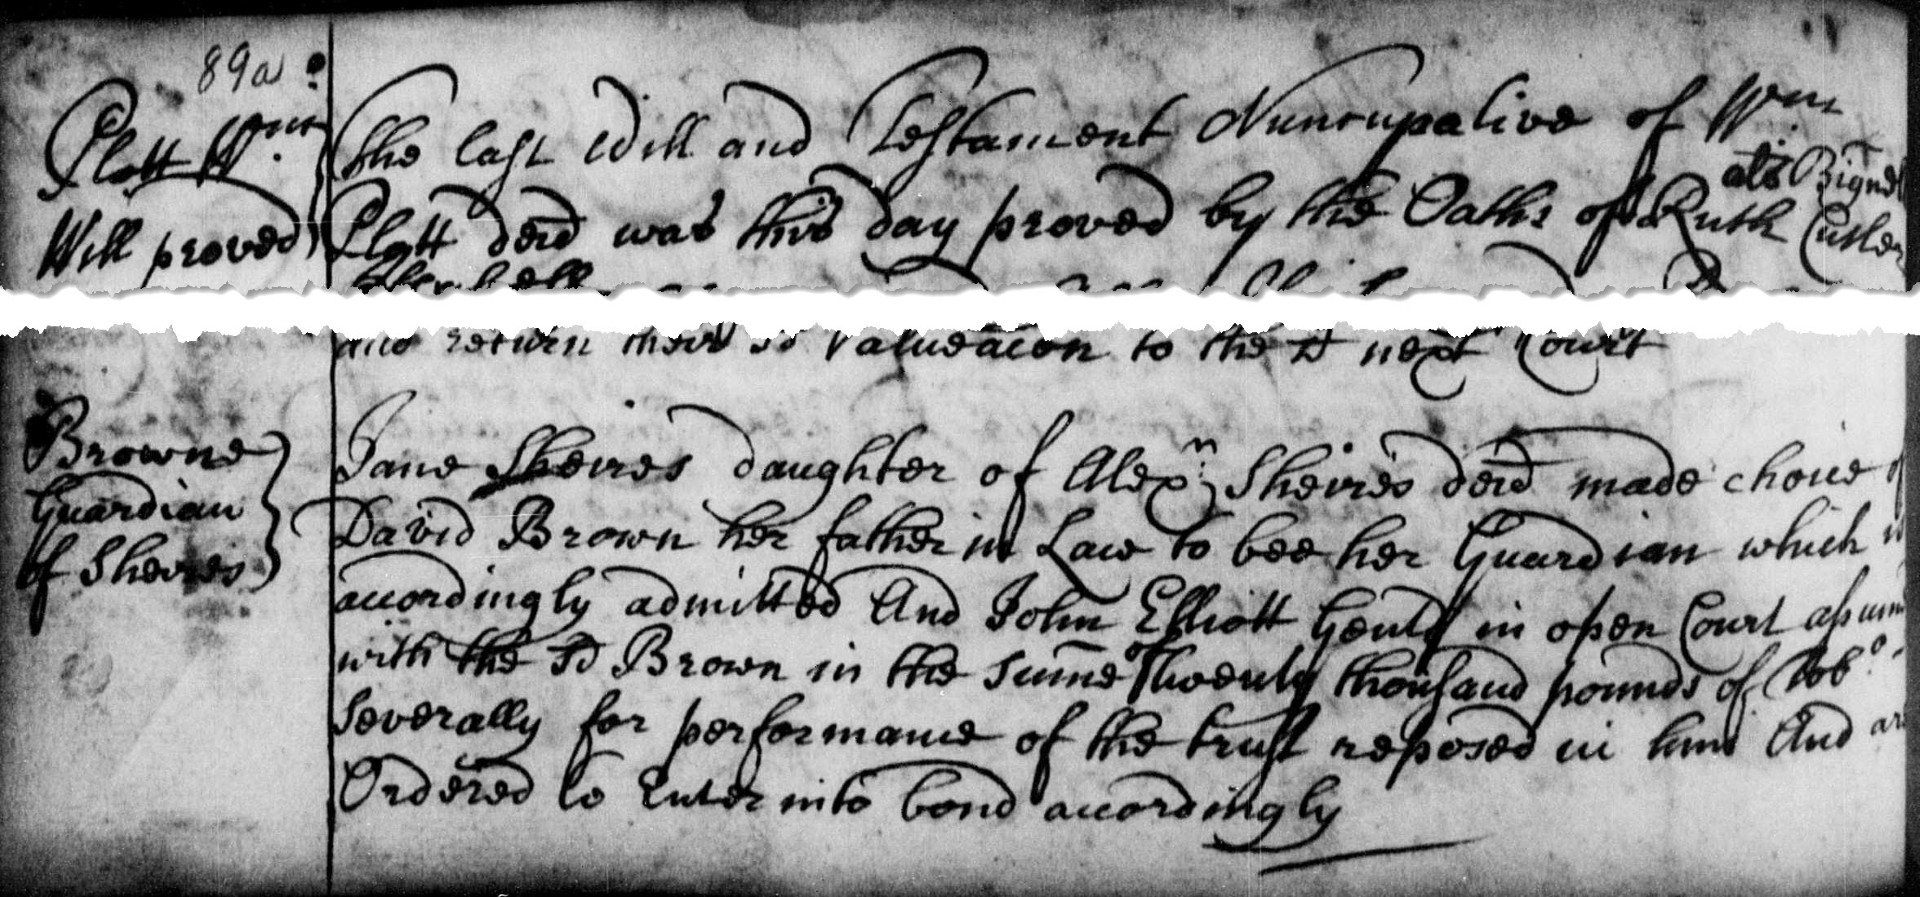 89a
Plott Wm
Will proved
The last Will and Testament Nuncupative of Wm
Plott decd was this day proved by the Oaths of Ruth Cutler
als Bignell
and return their sd valueacon to the sd next Court
Browne
Guardian
of Sheires
Jane Sheires daughter of Alexr Sheires decd made choice of
David Brown her father in Law to bee her Guardian which is
accordingly admitted And John Elliott Gentl in open Court assum
with the sd Brown in the sume of Twenty thousand pounds of Tobo
severally for performance of the trust reposed in him And are
Ordered to Enter into bond accordingly